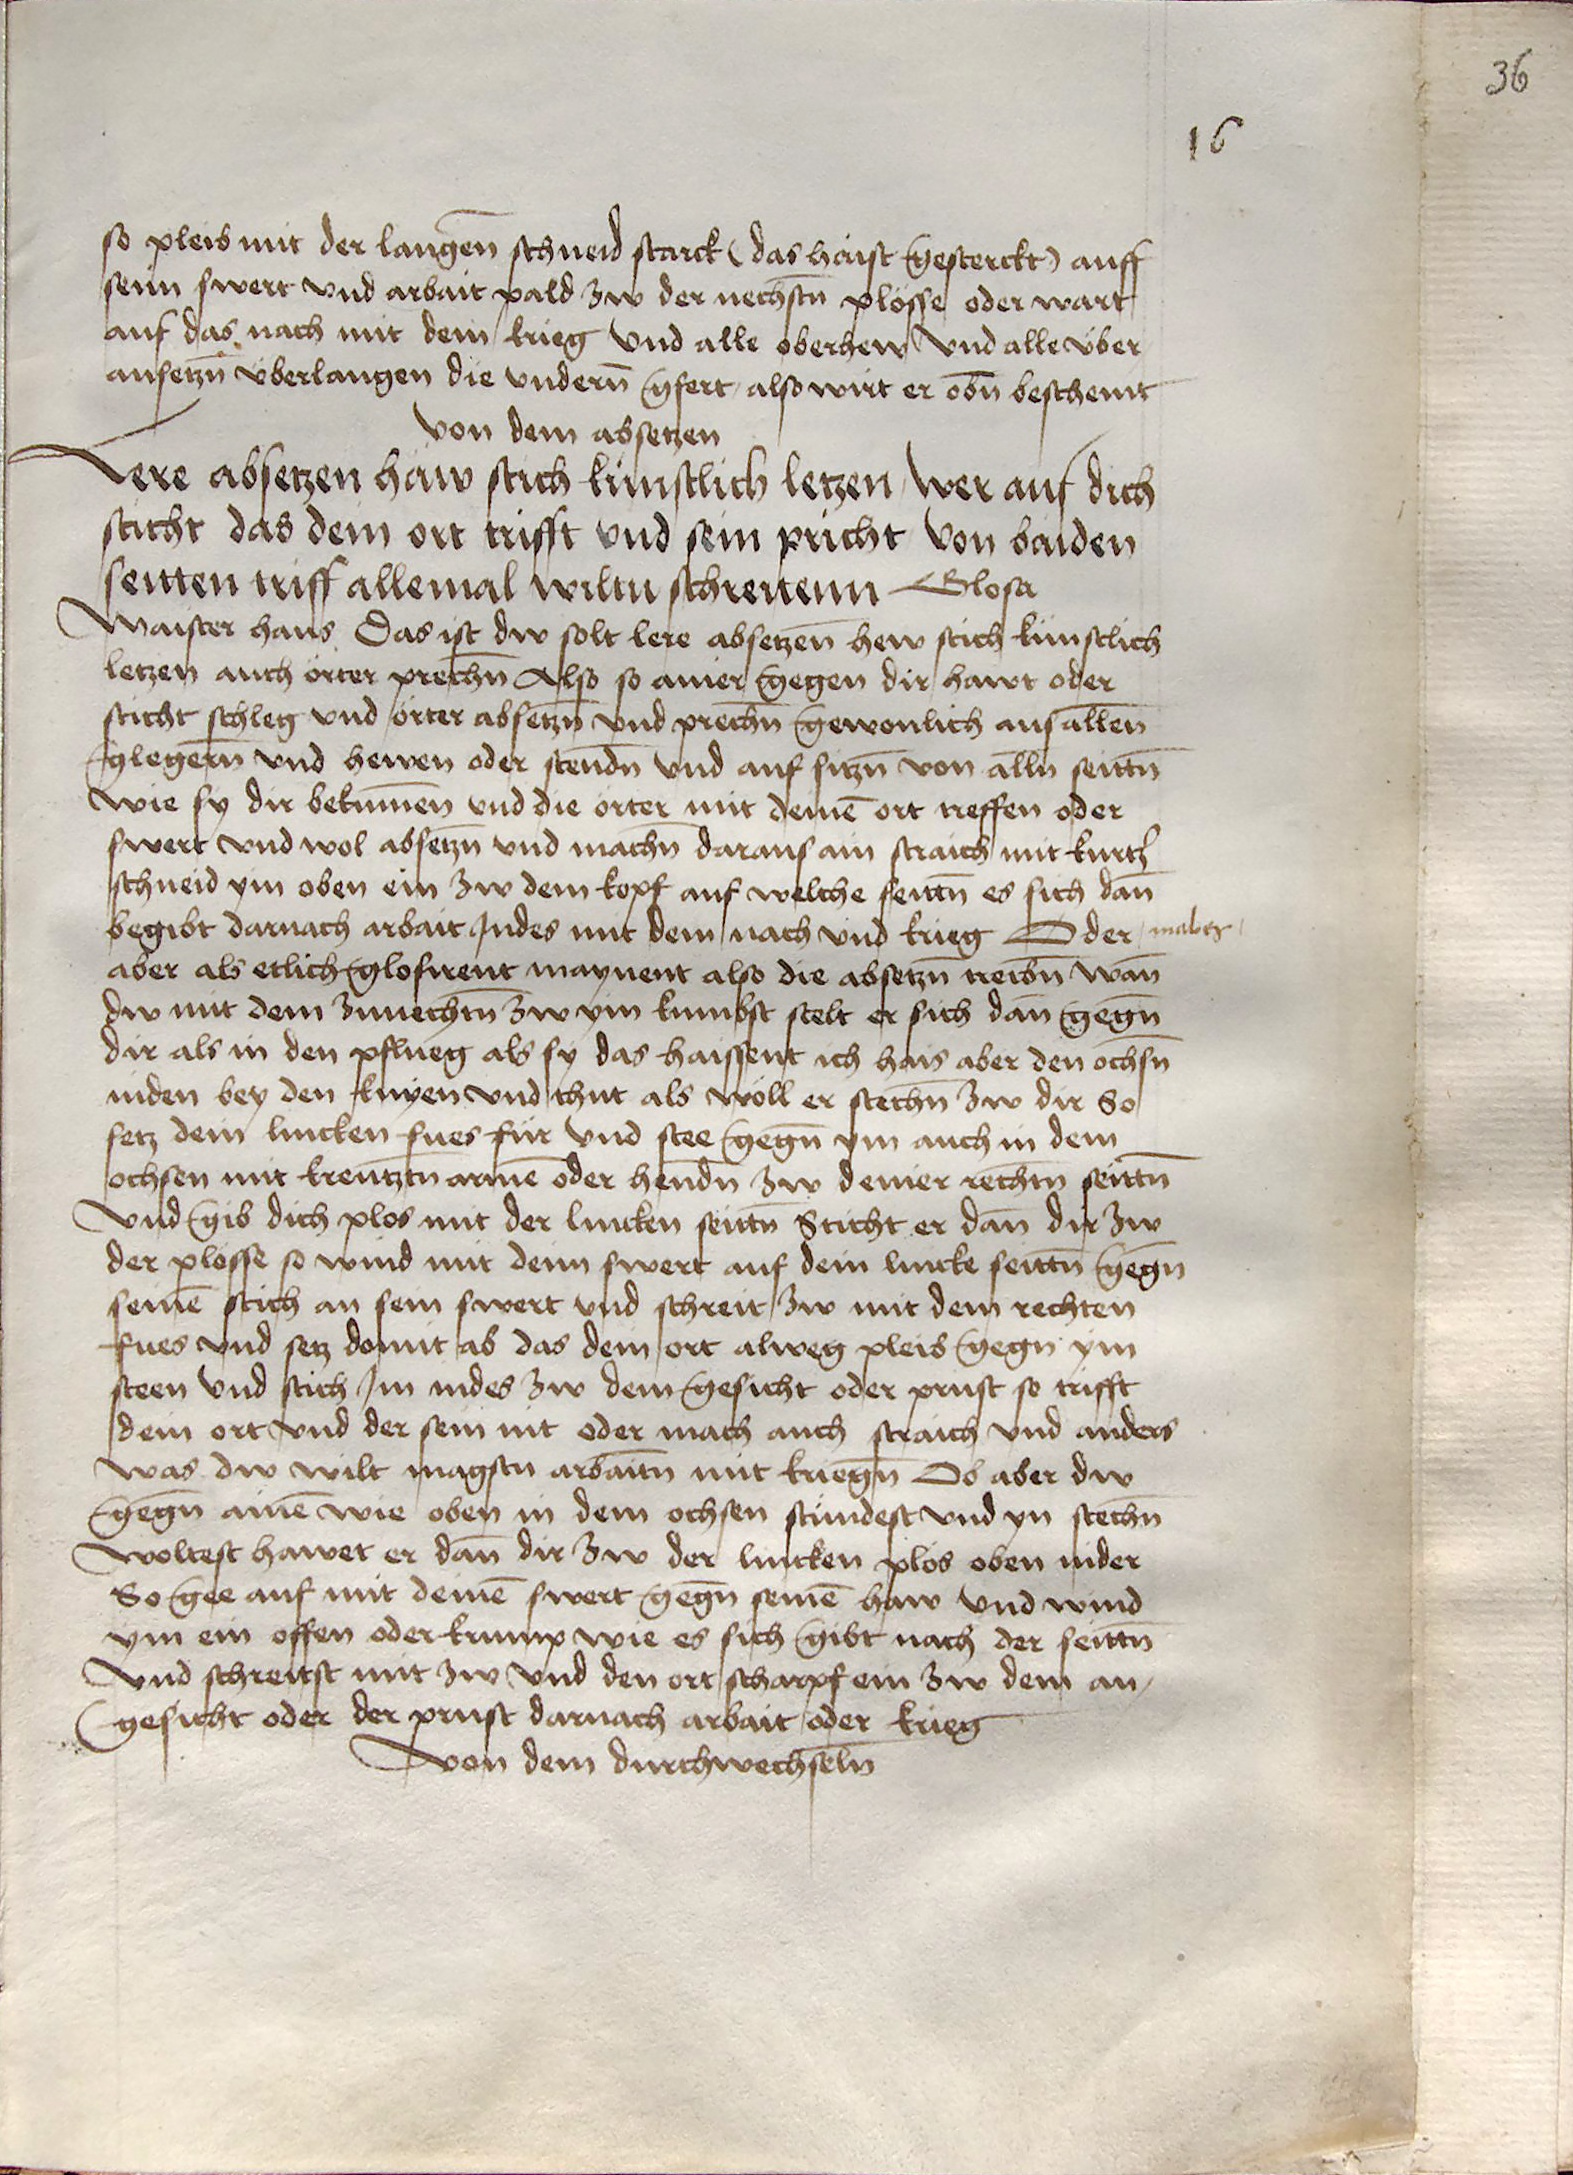 36
16
so pleib mit der langen̄ schneid starck (das haist gesterckt) auff
seim swert vnd arbait pald zw der nechstn̄ plösse oder wart
auf das nach mit dem krieg vnd alle oberhew vnd alle über
ansetzn̄ überlangen die vndern̄ gfert / also wirt er obn̄ beschemt
von dem absetzen
Lere absetzen häw stich künstlich letzen / wer auf dich
sticht das dein ort trifft vnd sein pricht von baiden
seitten triff allemal wiltu schreitenn Glosa
Maister hans Das ist dw solt lere absetzen̄ hew stich künstlich
letzen auch örter prechn̄ Also so ainer gegen dir hawt oder
sticht schleg vnd örter absetzn̄ vnd prechn̄ gewonlich aus allen̄
glegern̄ vnd hewen oder stendn̄ vnd auf sitzn̄ von alln̄ seittn̄
wie sy dir bekumen̄ vnd die örter mit deinē ort treffen oder
swert vnd wol absetzn̄ vnd machn̄ daraus ain straich mit kurtz
schneid ym oben ein zw dem kopf auf welche seittn̄ es sich dan̄
begibt darnach arbait Indes mit dem nach vnd krieg Oder
aber als etlich glosirent maynent also die absetzn̄ treibn̄ wan̄
dw mit dem zuuechtn̄ zw ym kumbst stelt er sich dan̄ gegn̄
dir als in den pflueg als sy das haissent ich hais aber den ochsn̄
niden bey den knyen vnd thut als wöll er stechn̄ zw dir So
setz dein lincken fues für vnd stee gegn̄ ym auch in dem
ochsen mit kreutztn̄ armē oder hendn̄ zw deiner rechtn̄ seittn̄
vnd gib dich plos mit der lincken seittn̄ Sticht er dan̄ dir zw
der plösse so wind mit deim swert auf dein lincke seittn̄ gegn̄
seinē stich an sein swert vnd schreit zw mit dem rechten
fues vnd setz domit ab das dein ort alweg pleib gegn̄ ym
steen vnd stich Im indes zw dem gesicht oder prust so trifft
dein ort vnd der sein nit oder mach auch straich vnd anders
was dw wilt magstu arbaitn̄ mit kriegn̄ Ob aber dw
gegn̄ ainē wie oben in dem ochsen stündest vnd yn stechn̄
woltest hawet er dan̄ dir zw der lincken plös oben nider
So gee auf mit deinē swert gegn̄ seinē haw vnd wind
ym ein offen oder krump wie es sich gibt nach der seittn̄
vnd schreitst mit zw vnd den ort scharpf ein zw dem an-
gesicht oder der prust darnach arbait oder krieg
von dem durchwechseln̄